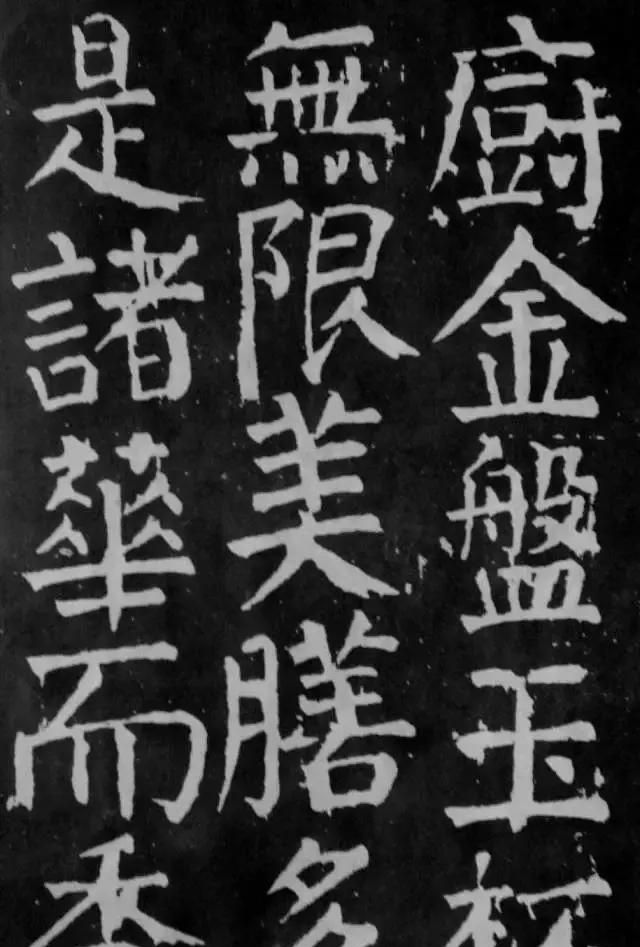 廚金盤玉杯
無限美膳多
是諸華而香